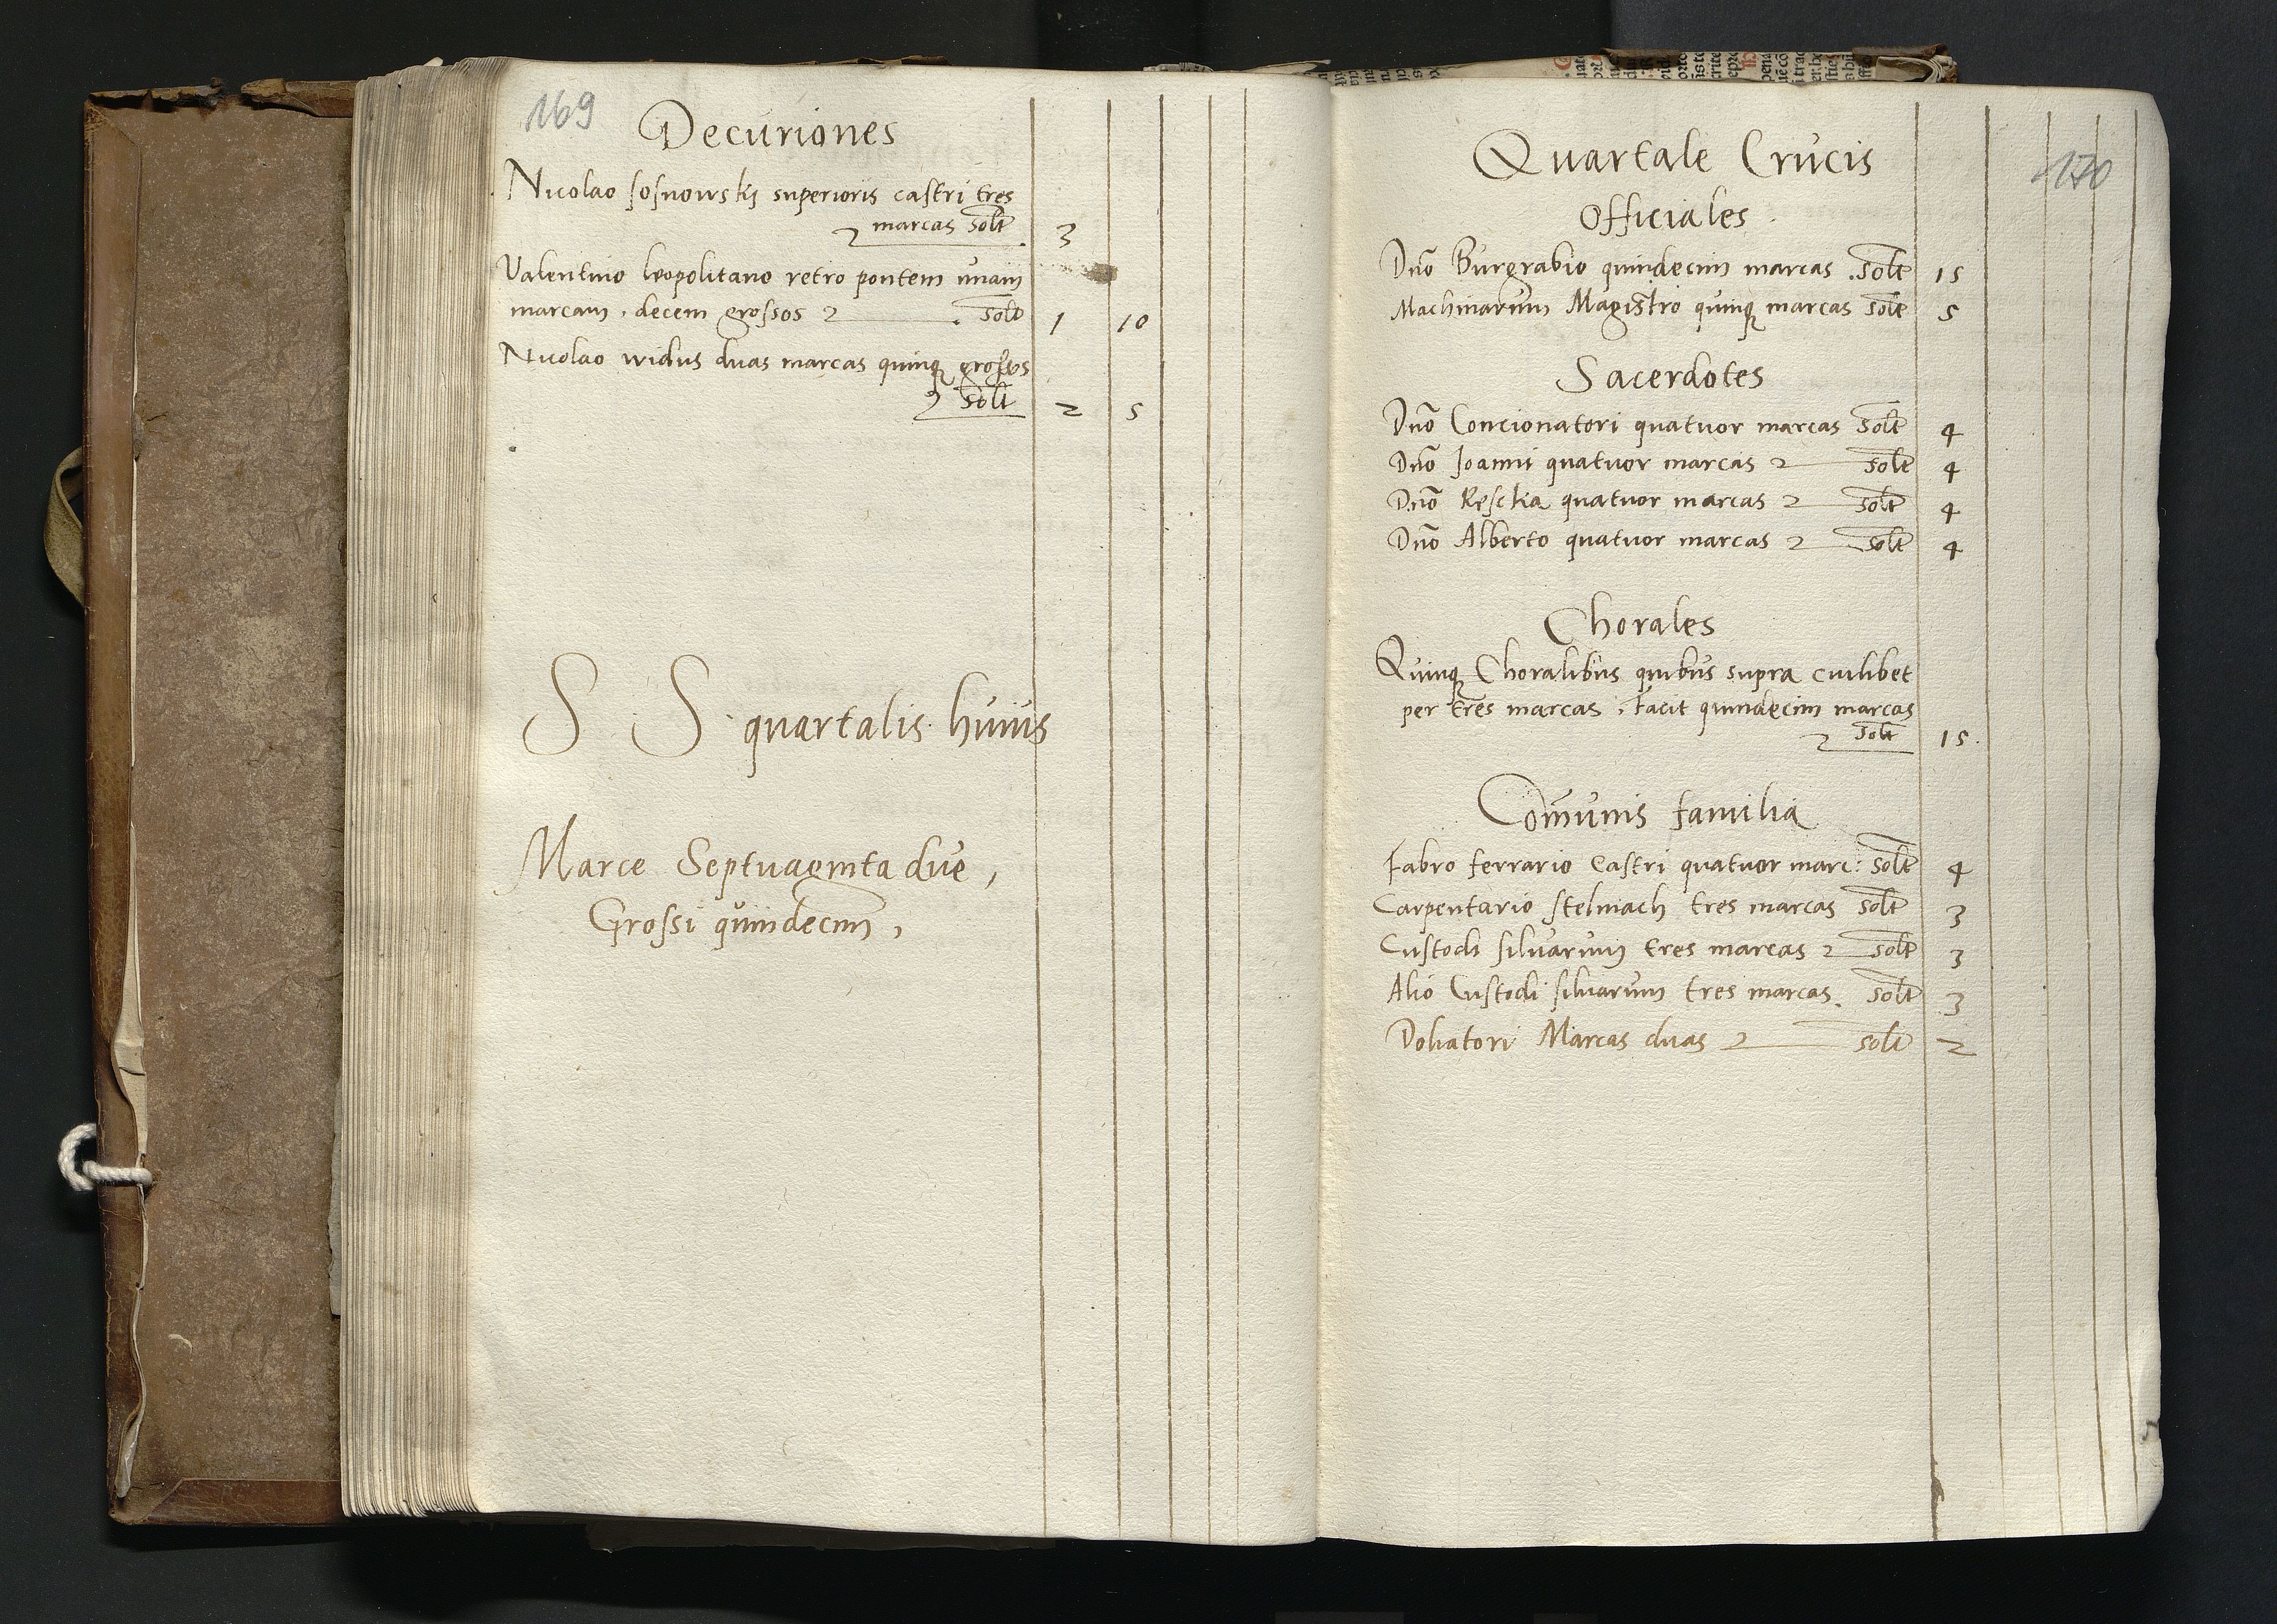 169
Decuriones
Nicolao sosnowskj superioris castri tres
marcas solt 3
Valentino leopolitano retro pontem unam
marcam . decem grossos solt 1 10
Nicolao widus duas marcas quinq grossos
solt 2 5
S S quartalis huius
Marce Septuaginta due,
Grossi quindecim,
170
Quartale Crucis
Officiales
Dno Burgrabio quindecim marcas . solt 15
Machinarum Magistro quinq marcas solt 5
Sacerdotes
Dno Concionatori quatuor marcas solt 4
Dno Joanni quatuor marcas solt 4
Dno Resckia quatuor marcas solt 4
Dno Alberto quatuor marcas solt 4
Chorales
Quinq Choralibus quibus supra cuilibet
per tres marcas . facit quindecim marcas
solt 15
Comunis familia
Fabro ferrario Castri quatuor marc: solt 4
Carpentario stelmach tres marcas solt 3
Custodi silvarum tres marcas solt 3
Alio Custodi silvarum tres marcas solt 3
Doliatori Marcas duas solt 2